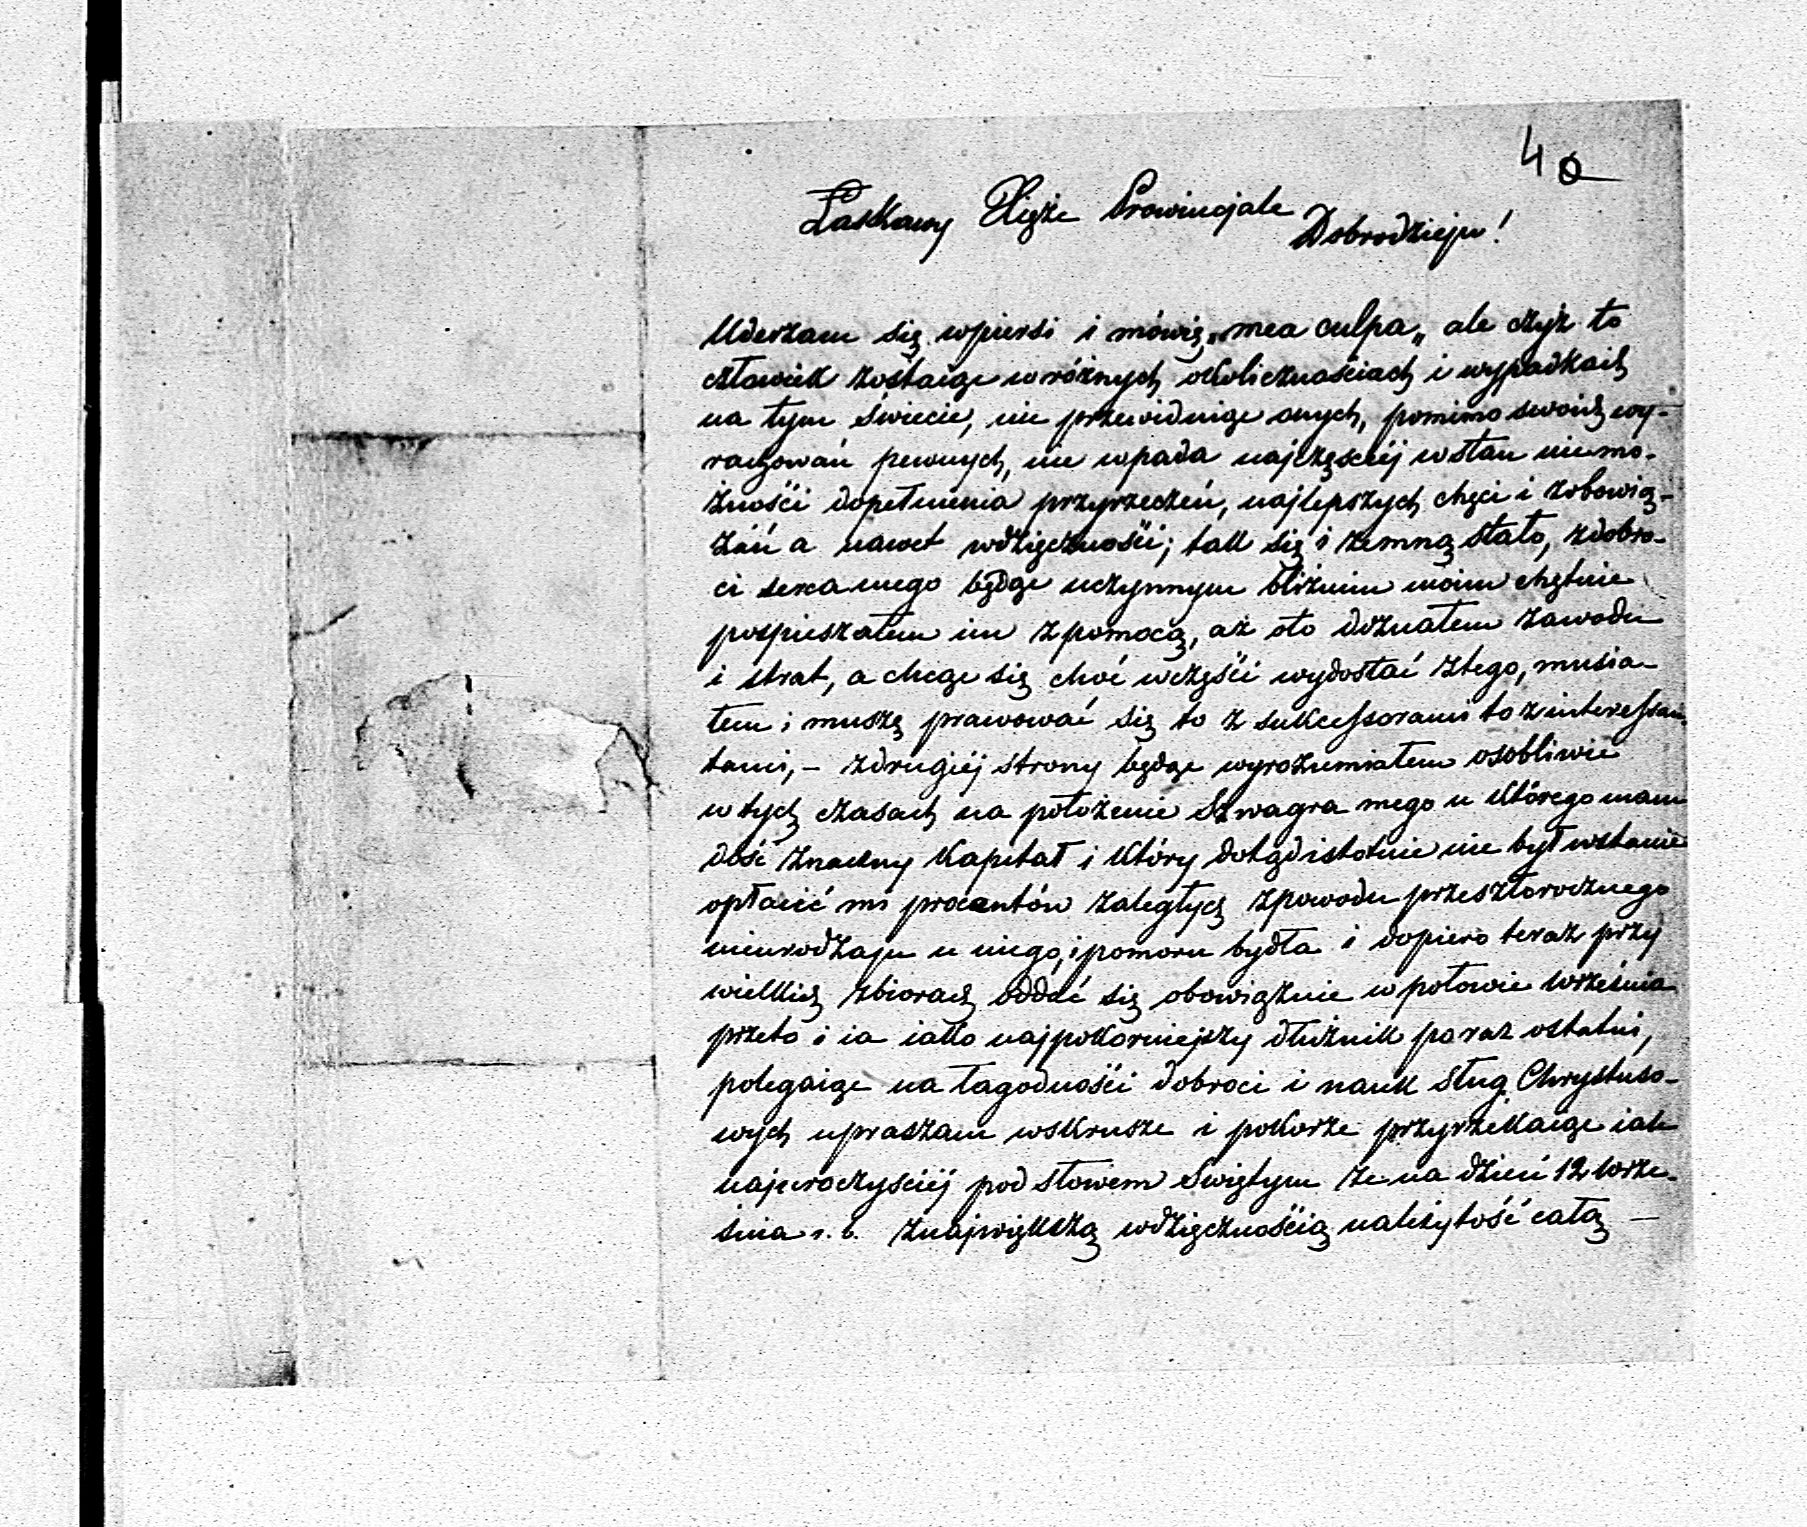 40
Łaskawy Xięże Prowincjale
Dobrodzieju!
Uderzam się wpiersi i mówię „mea culpa„ ale czyż to
człowiek zostaiąc w różnych okolicznościach i wypadkach
na tym świecie, nie przewidując onych, pomimo swoich wy-
rachowań pewnych, nie wpada najczęściéj w stan niemo-
żności dopełnienia przyrzeczeń, najlepszych chęci i zobowią-
zań a nawet wdzięczności; tak się i zemną stało, zdobro-
ci serca mego będąc uczynnym bliźnim moim chętnie
pospieszałem im z pomocą, aż oto doznałem zawodu
i strat, a chcąc się choć wczęści wydostać ztego, musia-
łem i muszę prawować się to z sukcessorami to z interessan-
tami, – zdrugiéj strony będąc wyrozumiałem osobliwie
w tych czasach na położenie Szwagra mego u którego mam
dość znaczny kapitał i który dotąd istotnie nie był wstanie
opłacić mi procentów zaległych zpowodu przeszłorocznego
nieurodzaju u niego, i pomoru bydła i dopiero teraz przy
wielkich zbiorach oddać się obowiązuie w połowie września
przeto i ia iako najpokorniejszy dłużnik po raz ostatni,
polegaiąc na łagodności dobroci i nauk sług Chrystuso-
wych upraszam wskrusze i pokorze przyrzekaiąc iak
najuroczyściéj pod słowem Świętym że na dzień 12 wrze-
śnia r. b. znajwiększą wdzięcznością należytość całą —